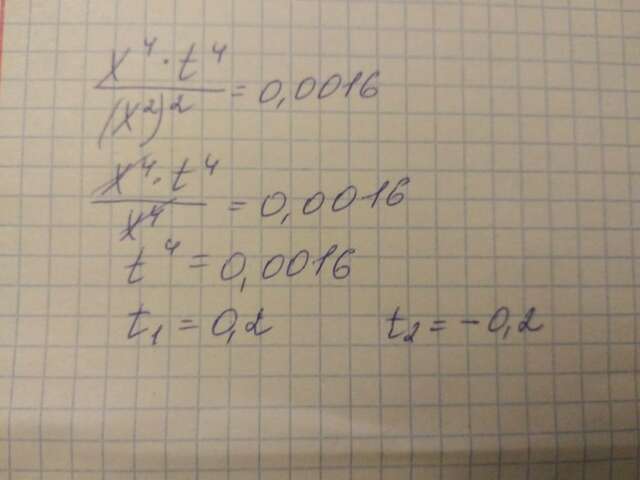 x⁴·t⁴/(x²)² = 0,0016
x⁴·t⁴/x⁴ = 0,0016
t⁴ = 0,0016
t₁ = 0,2 t₂ = -0,2